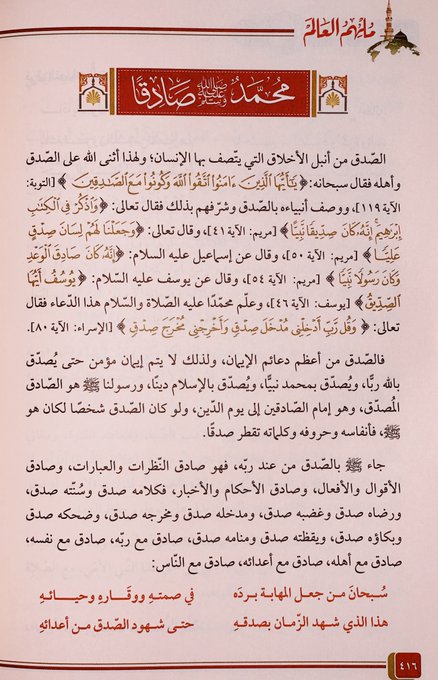 مُلهِمُ العَالَمِ
مُحَمَّدٌ ﷺ صَادِقًا
الصّدق من أنبل الأخلاق التي يتّصف بها الإنسان؛ ولهذا أثنى الله على الصّدق
وأهله فقال سبحانه: ﴿يَٰٓأَيُّهَا ٱلَّذِينَ ءَامَنُوا۟ ٱتَّقُوا۟ ٱللَّهَ وَكُونُوا۟ مَعَ ٱلصَّٰدِقِينَ﴾ [التوبة:
الآية ١١٩]، ووصف أنبياءه بالصّدق وشرّفهم بذلك فقال تعالى: ﴿وَٱذْكُرْ فِى ٱلْكِتَٰبِ
إِبْرَٰهِيمَ إِنَّهُۥ كَانَ صِدِّيقًا نَّبِيًّا﴾ [مريم: الآية ٤١]، وقال تعالى: ﴿وَجَعَلْنَا لَهُمْ لِسَانَ صِدْقٍ
عَلِيًّا﴾ [مريم: الآية ٥٠]، وقال عن إسماعيل عليه السلام: ﴿إِنَّهُۥ كَانَ صَادِقَ ٱلْوَعْدِ
وَكَانَ رَسُولًا نَّبِيًّا﴾ [مريم: الآية ٥٤]، وقال عن يوسف عليه السّلام: ﴿يُوسُفُ أَيُّهَا
ٱلصِّدِّيقُ﴾ [يوسف: الآية ٤٦]، وعلّم محمّدًا عليه الصّلاة والسّلام هذا الدّعاء فقال
تعالى: ﴿وَقُل رَّبِّ أَدْخِلْنِى مُدْخَلَ صِدْقٍ وَأَخْرِجْنِى مُخْرَجَ صِدْقٍ﴾ [الإسراء: الآية ٨٠].
فالصّدق من أعظم دعائم الإيمان، ولذلك لا يتم إيمان مؤمن حتى يُصدّق
بالله ربًّا، ويُصدّق بمحمد نبيًّا، ويُصدّق بالإسلام دينًا، ورسولنا ﷺ هو الصّادق
المُصدّق، وهو إمام الصّادقين إلى يوم الدّين، ولو كان الصّدق شخصًا لكان هو
ﷺ، فأنفاسه وحروفه وكلماته تقطر صدقًا.
جاء ﷺ بالصّدق من عند ربّه، فهو صادق النّظرات والعبارات، وصادق
الأقوال والأفعال، وصادق الأحكام والأخبار، فكلامه صدق وسُنّته صدق،
ورضاه صدق وغضبه صدق، ومدخله صدق ومخرجه صدق، وضحكه صدق
وبكاؤه صدق، ويقظته صدق ومنامه صدق، صادق مع ربّه، صادق مع نفسه،
صادق مع أهله، صادق مع أعدائه، صادق مع النّاس:
سُبحانَ من جعل المهابة بردَه في صمتهِ ووقارِه وحيائـهِ
هذا الذي شهد الزّمان بصدقـهِ حتى شهود الصّدق من أعدائهِ
٤١٦